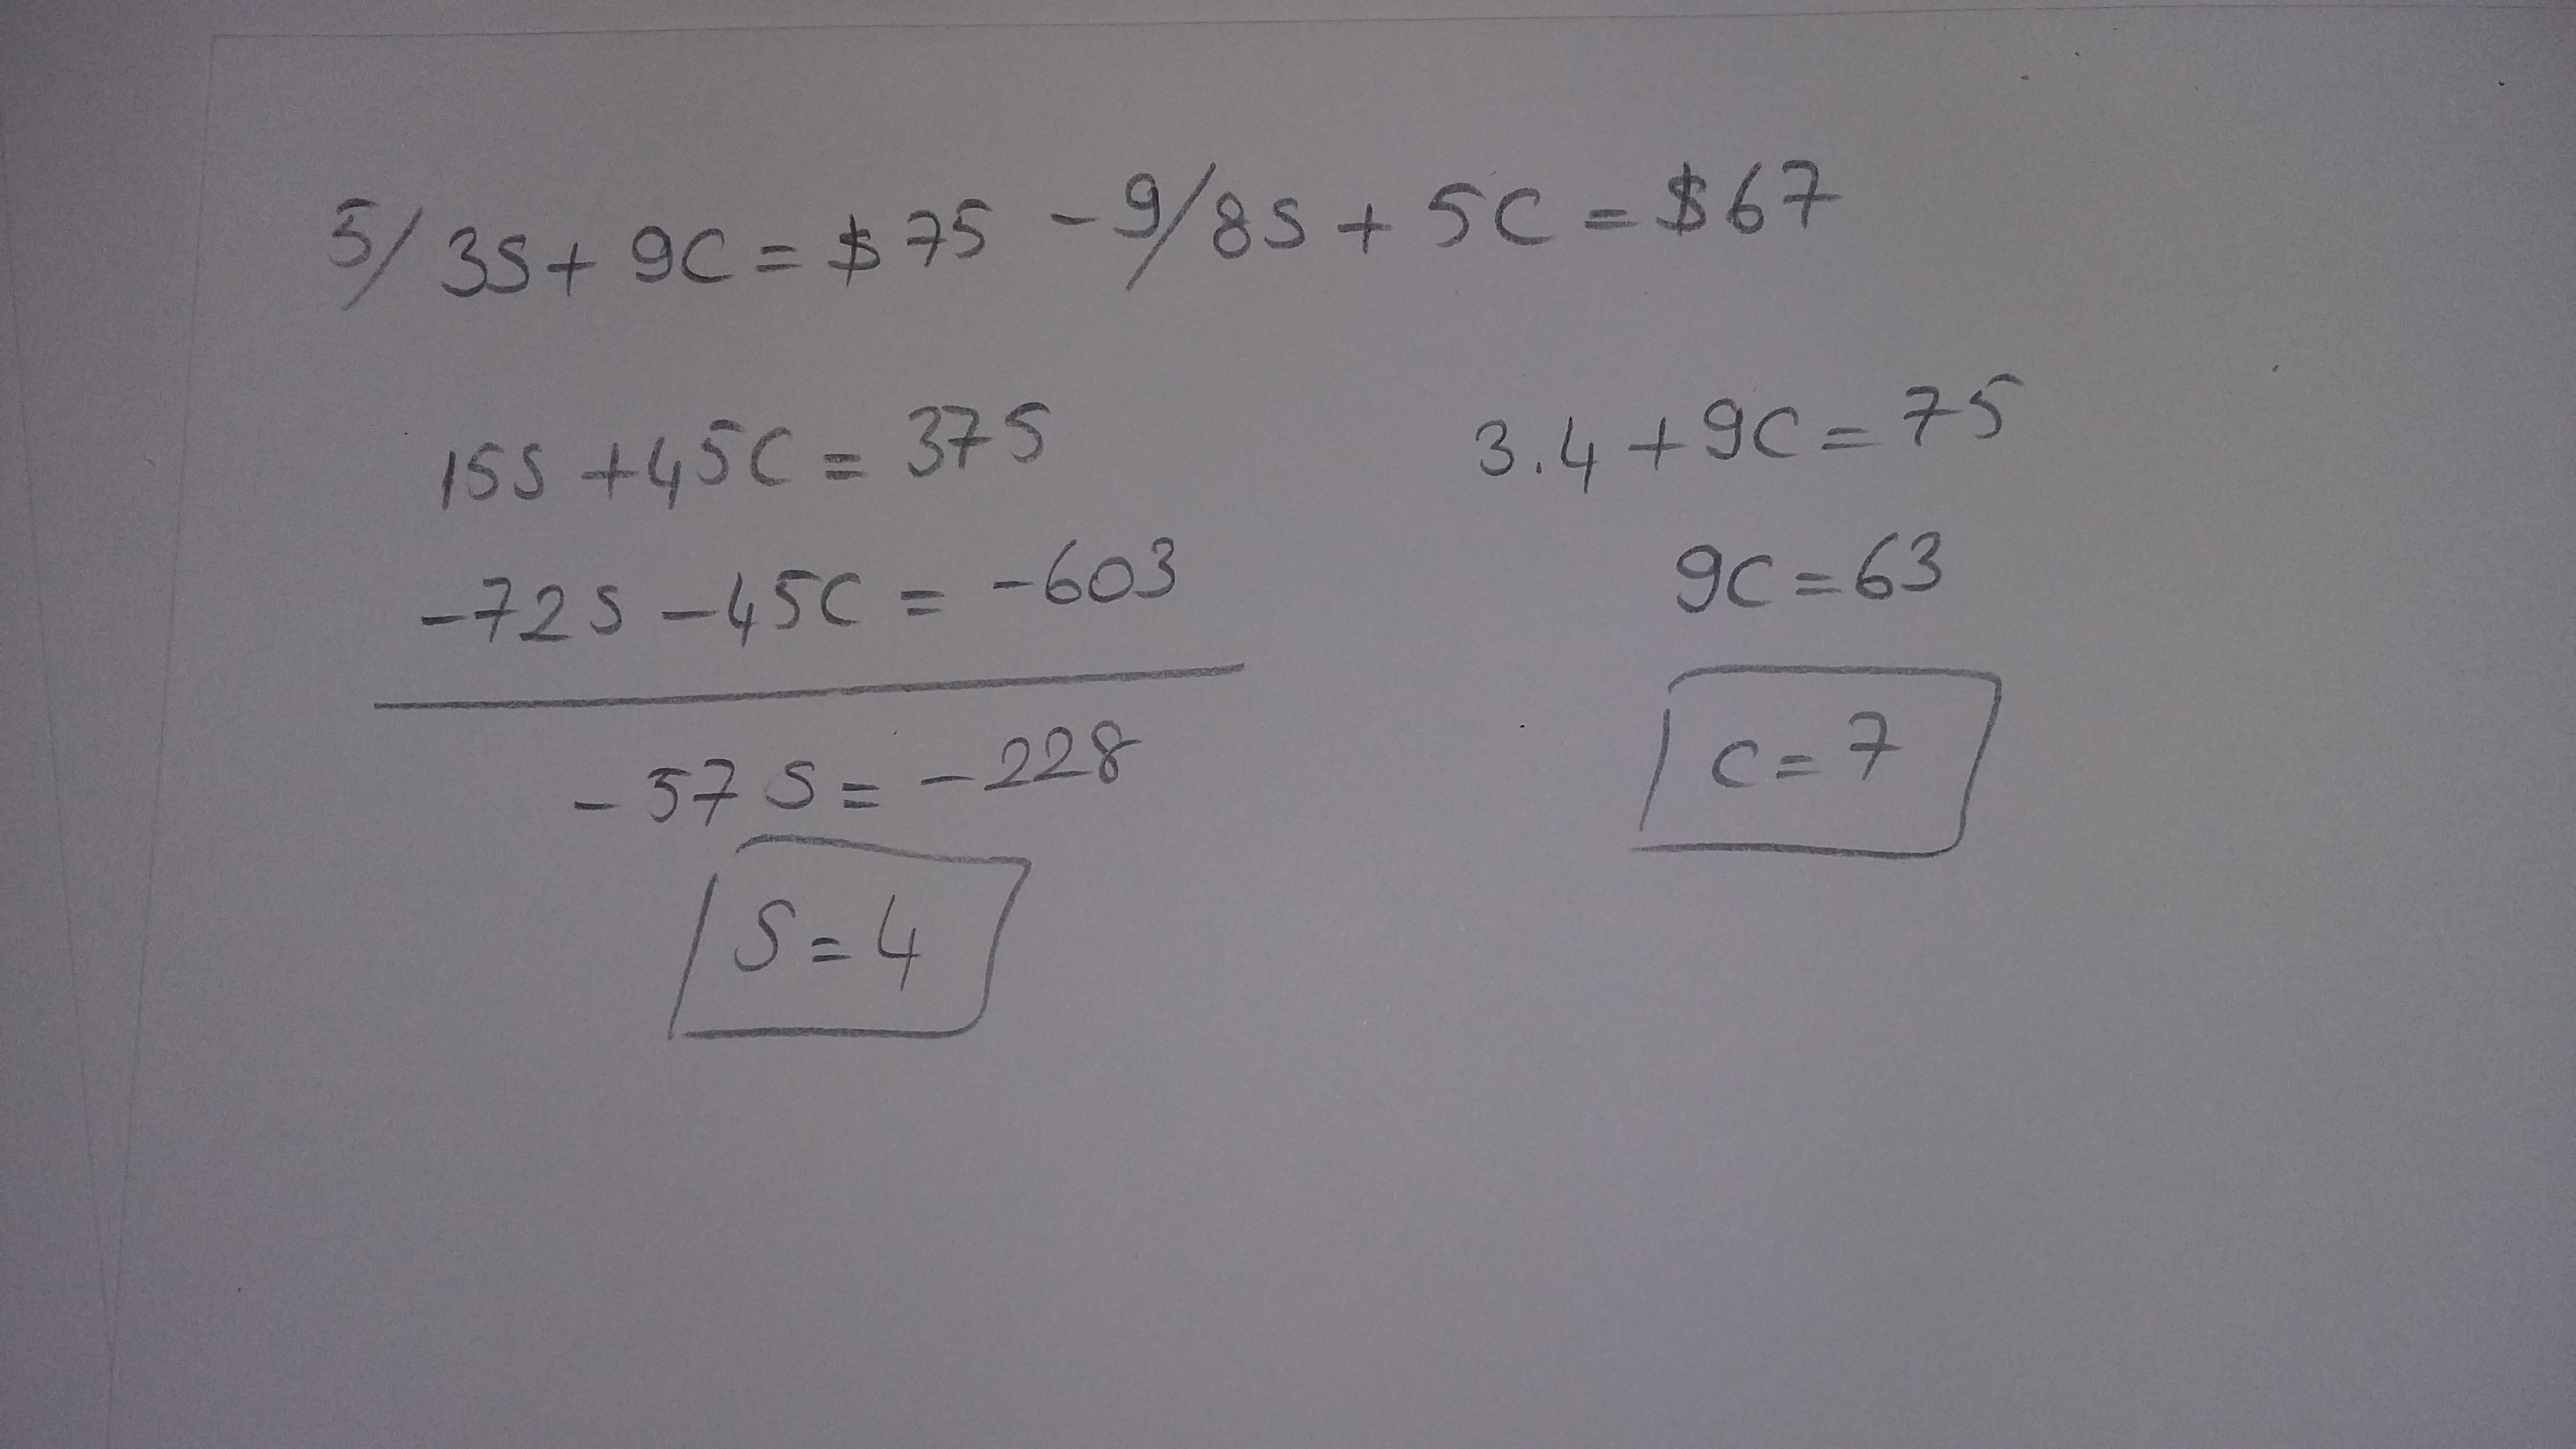 5/ 3S + 9C = $75 -9/8S + 5C = $67
15S + 45C = 375
-72S - 45C = -603
-57S = -228
S = 4
3.4 + 9C = 75
9C = 63
C = 7